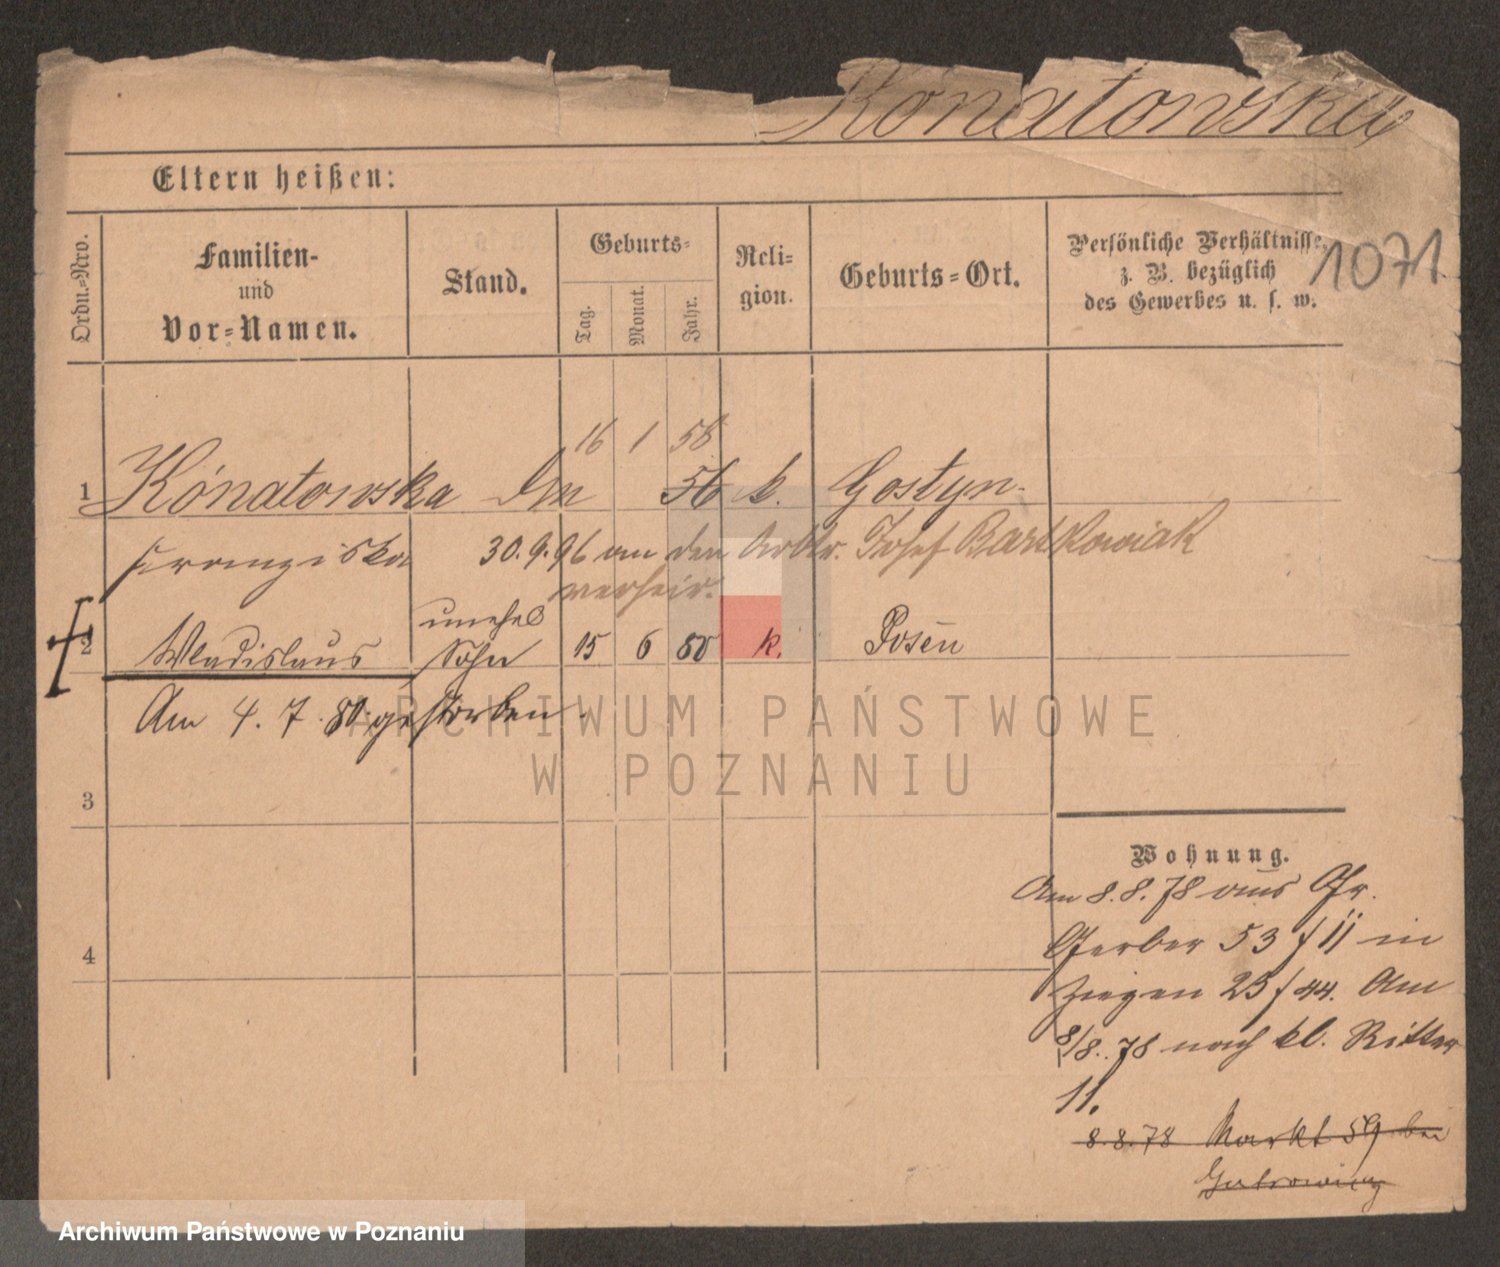 Konatowska
Eltern heißen:
1071
Ordn.-Nro.
Familien-
und
Vor-Namen.
Stand.
Geburts-
Tag.
Monat.
Jahr.
Reli-
gion.
Geburts-Ort.
Persönliche Verhältnisse,
z. B. bezüglich
des Gewerbes u. s. w.
16 1 58
1 Konatowska 56 k. Gostyn.
Franziska 30.9.96 an den Arbtr. Josef Bartkowiak
verheir.
unehel
2 Wladislaus Sohn 15 6 80 k. Posen
Am 4. 7. 80 gestorben.
ARCHIWUM PAŃSTWOWE
W POZNANIU
3
4
Wohnung.
Am 8.8.78 aus Gr.
Gerber 53 / II in
Ziegen 23 / 44. Am
8/8. 78 nach kl. Ritter
11.
8.8.78 Markt 59 bei
Archiwum Państwowe w Poznaniu